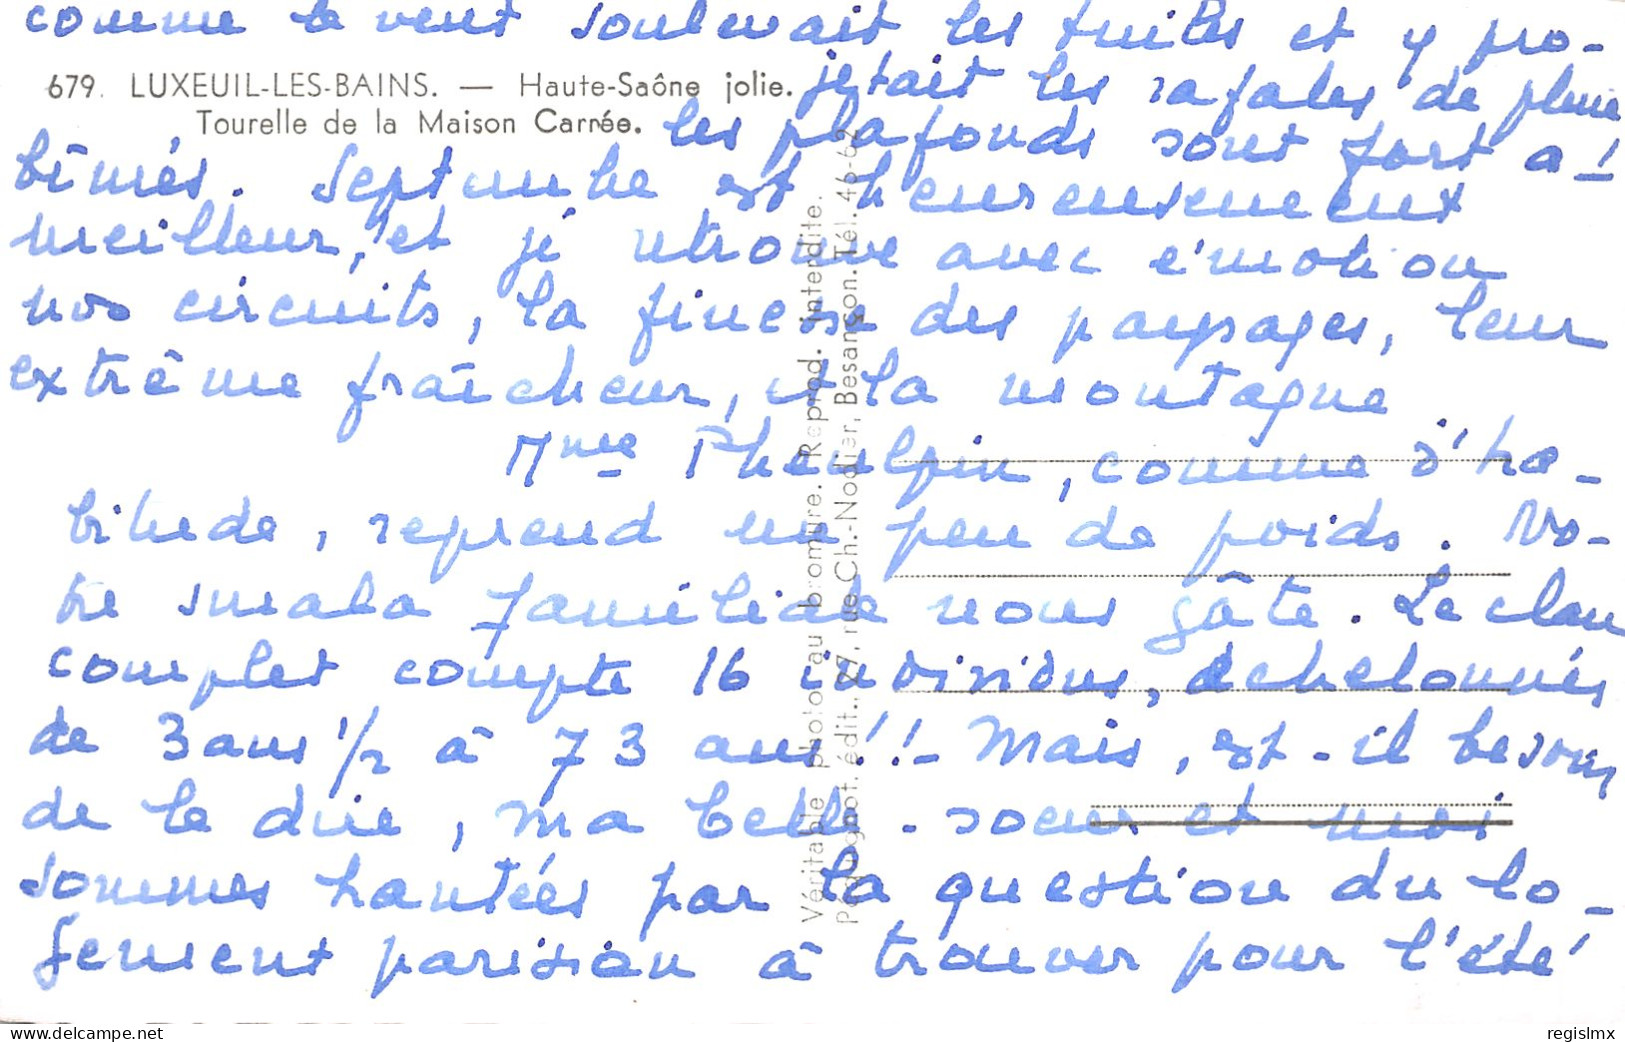 comme le vent soulevait les tuiles et y pro-
679. LUXEUIL-LES-BAINS. — Haute-Saône jolie.
Tourelle de la Maison Carrée.
jetait les rafales de pluie
les plafonds sont fort a-
bîmés. Septembre est heureusement
meilleur, et je retrouve avec émotion
nos circuits, la finesse des paysages, leur
extrême fraîcheur, et la montagne
Mme Pheulpin, comme d'ha-
bitude, reprend un peu de poids. Vo-
tre smala familiale nous gâte. Le clan
complet compte 16 individus, échelonnés
de 3 ans 1/2 à 73 ans!!- Mais, est-il besoin
de le dire, ma belle-soeur et moi
sommes hantées par la question du lo-
gement parisien à trouver pour l'été
Véritable photo au bromure. Reprod. interdite.
édit., 27, rue Ch.-Nodier, Besançon. Tél. 46-62
www.delcampe.net
regislmx